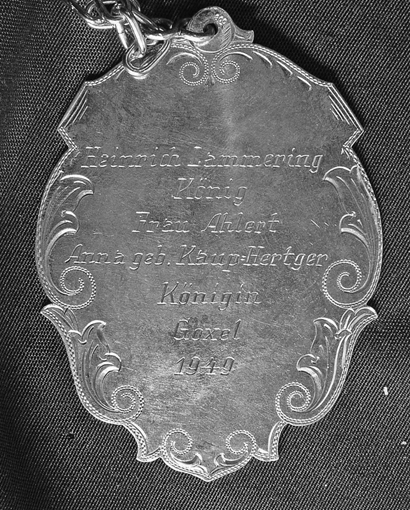 Heinrich Lammering
König
Frau Ahlert
Anna geb. Kaup-Hertger
Königin
Goxel
1949